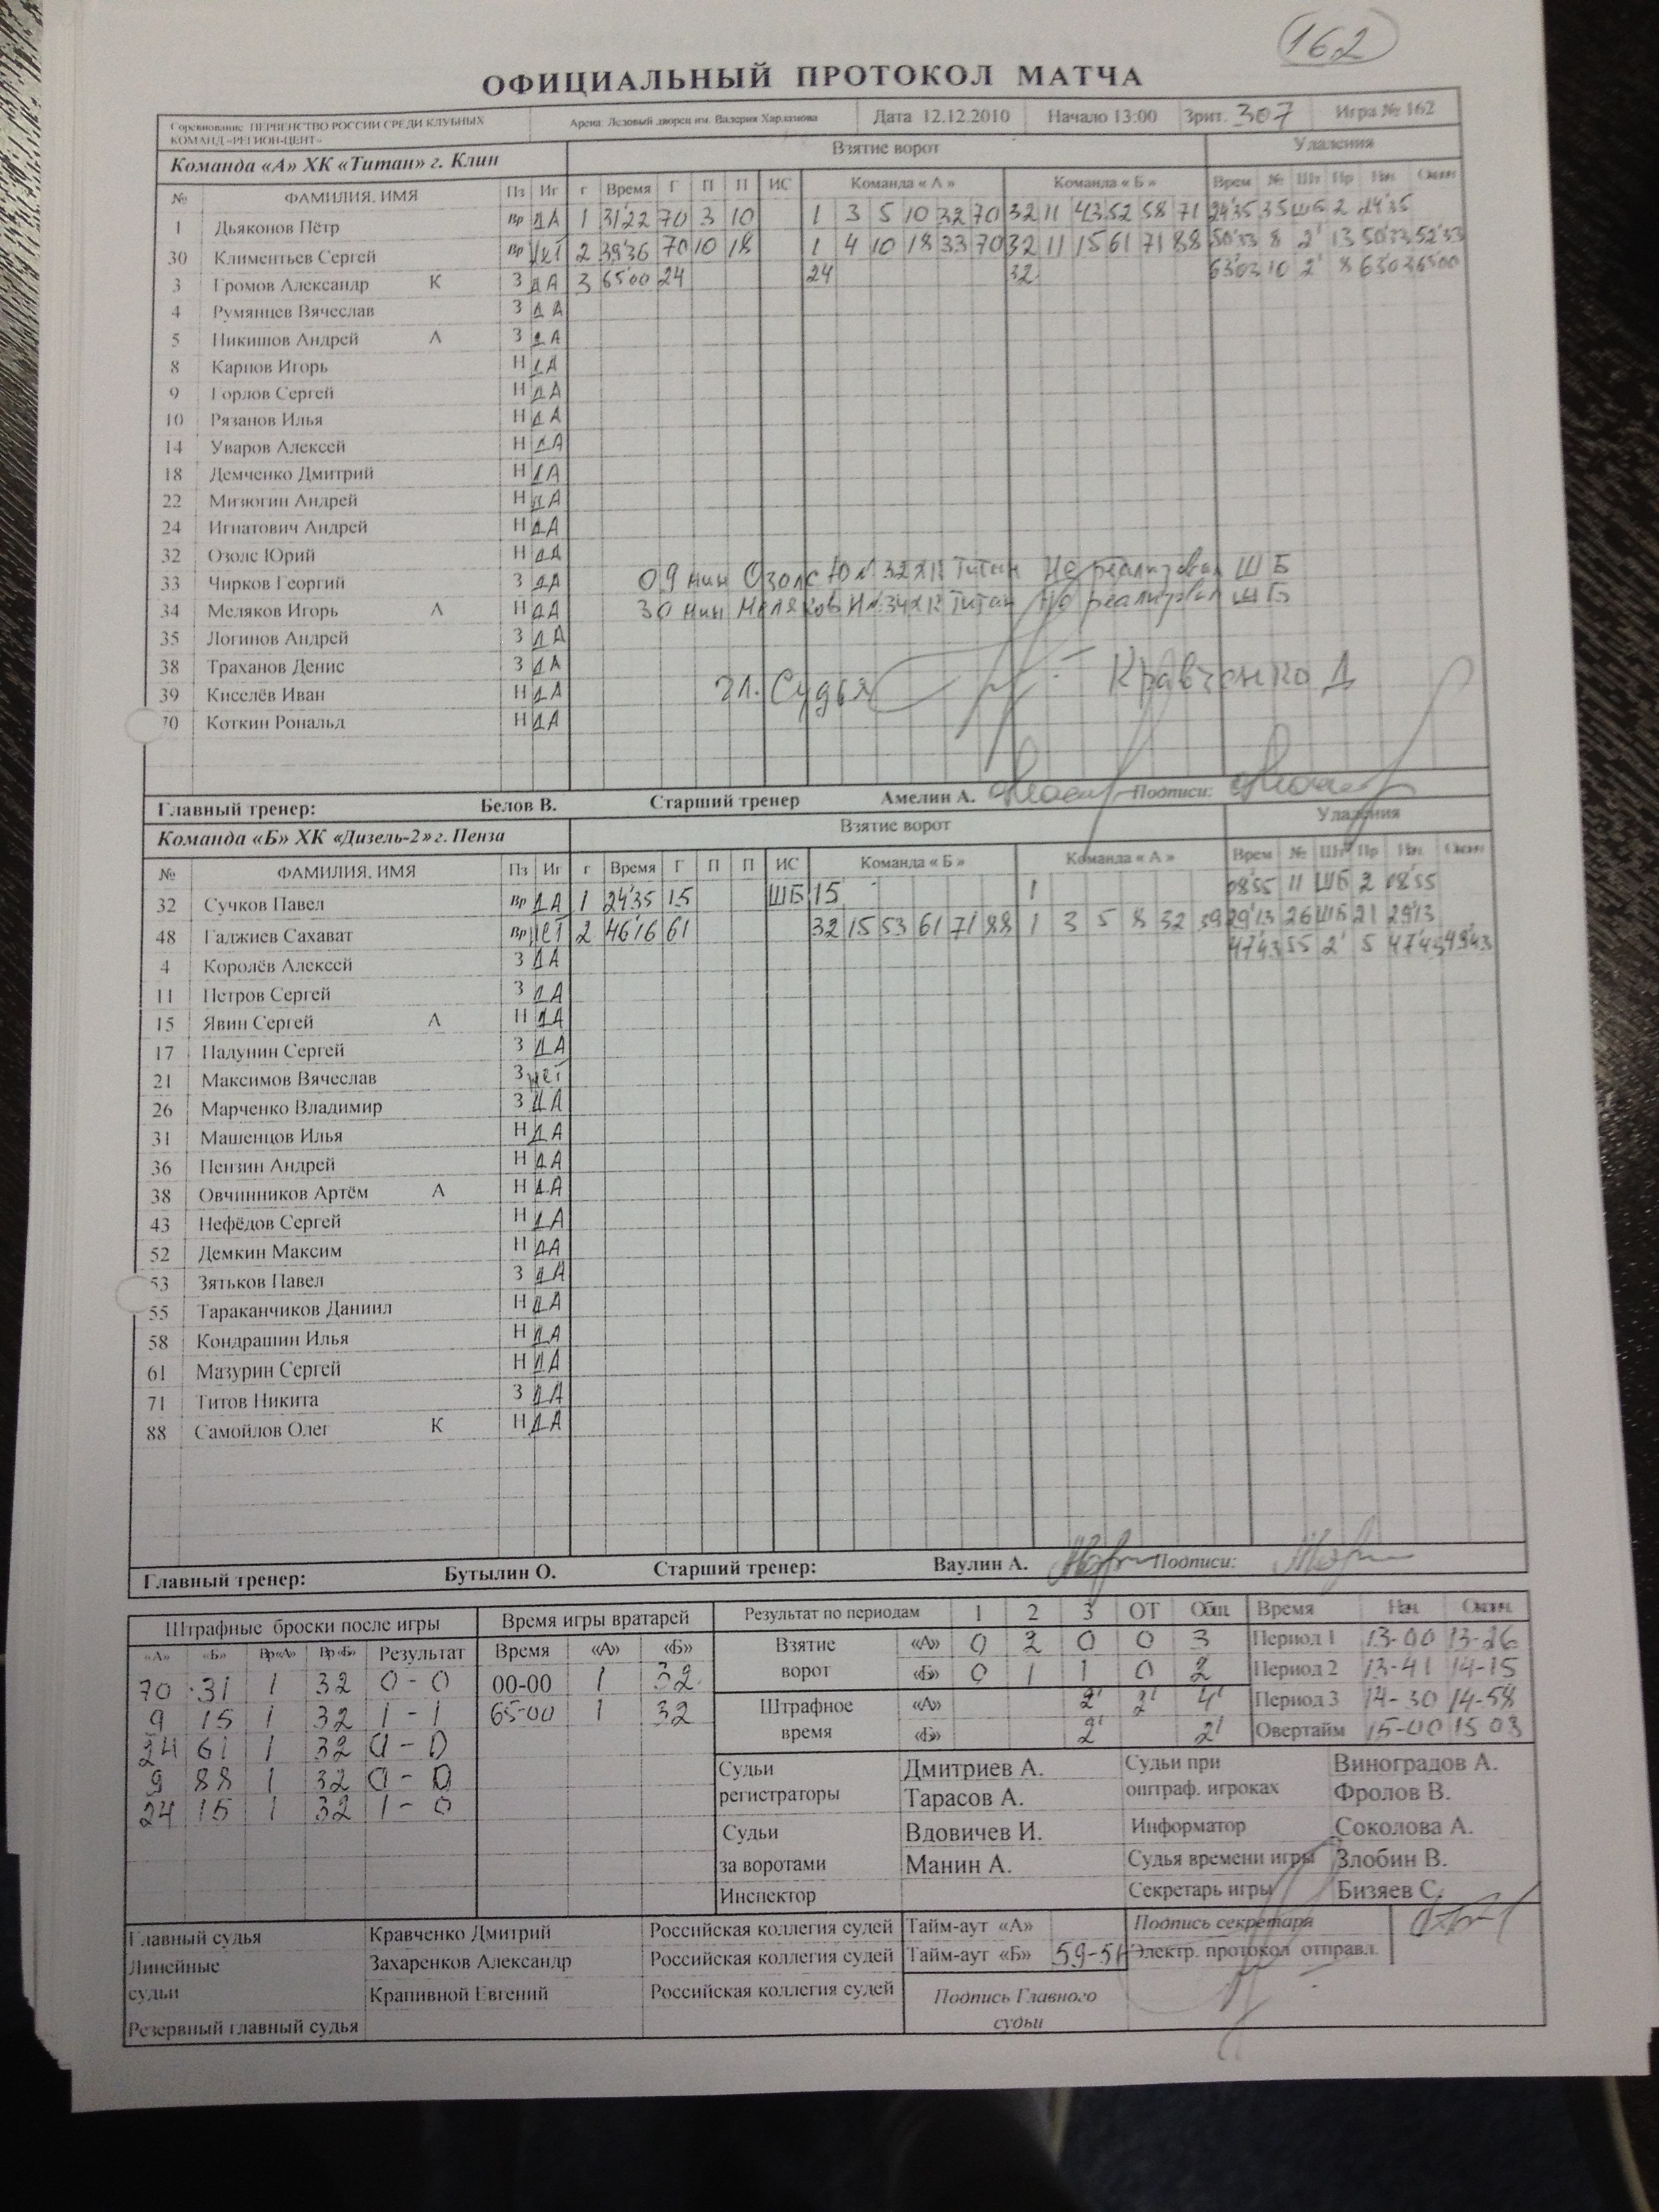 162
ОФИЦИАЛЬНЫЙ ПРОТОКОЛ МАТЧА
Соревнование ПЕРВЕНСТВО РОССИИ СРЕДИ КЛУБНЫХ КОМАНД «РЕГИОН-ЦЕНТ» Арена: Ледовый дворец им. Валерия Харламова Дата 12.12.2010 Начало 13:00 Зрит. 307 Игра № 162
Команда «А» ХК «Титан» г. Клин Взятие ворот Удаления
№ ФАМИЛИЯ, ИМЯ Пз Иг г Время Г П П ИС Команда « А » Команда « Б » Врем № Шт Пр Нач Оконч
1 Дьяконов Пётр Вр ДА 1 31'22 70 3 10 1 3 5 10 32 70 32 11 43 52 58 71 24'35 35 ШБ 2 24'35
30 Климентьев Сергей Вр нет 2 39'36 70 10 18 1 4 10 18 33 70 32 11 15 61 71 88 50'33 8 2' 13 50'33 52'33
3 Громов Александр К З ДА 3 65'00 24 24 32 63'03 10 2' 8 63'03 65'00
4 Румянцев Вячеслав З ДА
5 Никишов Андрей А З ДА
8 Карпов Игорь Н ДА
9 Горлов Сергей Н ДА
10 Рязанов Илья Н ДА
14 Уваров Алексей Н ДА
18 Демченко Дмитрий Н ДА
22 Мизюгин Андрей Н ДА
24 Игнатович Андрей Н ДА
32 Озолс Юрий Н ДА
33 Чирков Георгий З ДА 09 мин Озолс Ю № 32 ХК Титан Не реализовал ШБ
34 Меляков Игорь А Н ДА 30 мин Меляков И № 34 ХК Титан Не реализовал ШБ
35 Логинов Андрей З ДА
38 Траханов Денис З ДА
39 Киселёв Иван Н ДА Гл. Судья Кравченко Д
70 Коткин Рональд Н ДА
Главный тренер: Белов В. Старший тренер Амелин А. Подписи:
Команда «Б» ХК «Дизель-2» г. Пенза Взятие ворот Удаления
№ ФАМИЛИЯ, ИМЯ Пз Иг г Время Г П П ИС Команда « Б » Команда « А » Врем № Шт Пр Нач Оконч
32 Сучков Павел Вр ДА 1 24'35 15 ШБ 15 1 08'55 11 ШБ 2 08'55
48 Гаджиев Сахават Вр нет 2 46'16 61 32 15 53 61 71 88 1 3 5 8 32 39 29'13 26 ШБ 21 29'13
4 Королёв Алексей З ДА 47'43 55 2' 5 47'43 49'43
11 Петров Сергей З ДА
15 Явин Сергей А Н ДА
17 Падунин Сергей З ДА
21 Максимов Вячеслав З нет
26 Марченко Владимир З ДА
31 Машенцов Илья Н ДА
36 Пензин Андрей Н ДА
38 Овчинников Артём А Н ДА
43 Нефёдов Сергей Н ДА
52 Демкин Максим Н ДА
53 Зятьков Павел З ДА
55 Тараканчиков Даниил Н ДА
58 Кондрашин Илья Н ДА
61 Мазурин Сергей Н ДА
71 Титов Никита З ДА
88 Самойлов Олег К Н ДА
Главный тренер: Бутылин О. Старший тренер: Ваулин А. Подписи:
Штрафные броски после игры Время игры вратарей Результат по периодам 1 2 3 ОТ Общ. Время Нач. Оконч.
«А» «Б» Вр«А» Вр«Б» Результат Время «А» «Б» Взятие ворот «А» 0 2 0 0 3 Период 1 13-00 13-26
70 31 1 32 0 - 0 00-00 1 32 «Б» 0 1 1 0 2 Период 2 13-41 14-15
9 15 1 32 1 - 1 65-00 1 32 Штрафное время «А» 2' 2' 4' Период 3 14-30 14-58
24 61 1 32 0 - 0 «Б» 2' 2' Овертайм 15-00 15 03
9 88 1 32 0 - 0 Судьи регистраторы Дмитриев А. Тарасов А. Судьи при оштраф. игроках Виноградов А. Фролов В.
24 15 1 32 1 - 0 Судьи за воротами Вдовичев И. Манин А. Информатор Соколова А.
Судья времени игры Злобин В.
Инспектор Секретарь игры Бизяев С.
Главный судья Кравченко Дмитрий Российская коллегия судей Тайм-аут «А» Подпись секретаря
Линейные судьи Захаренков Александр Российская коллегия судей Тайм-аут «Б» 59-51 Электр. протокол отправл.
Крапивной Евгений Российская коллегия судей Подпись Главного судьи
Резервный главный судья